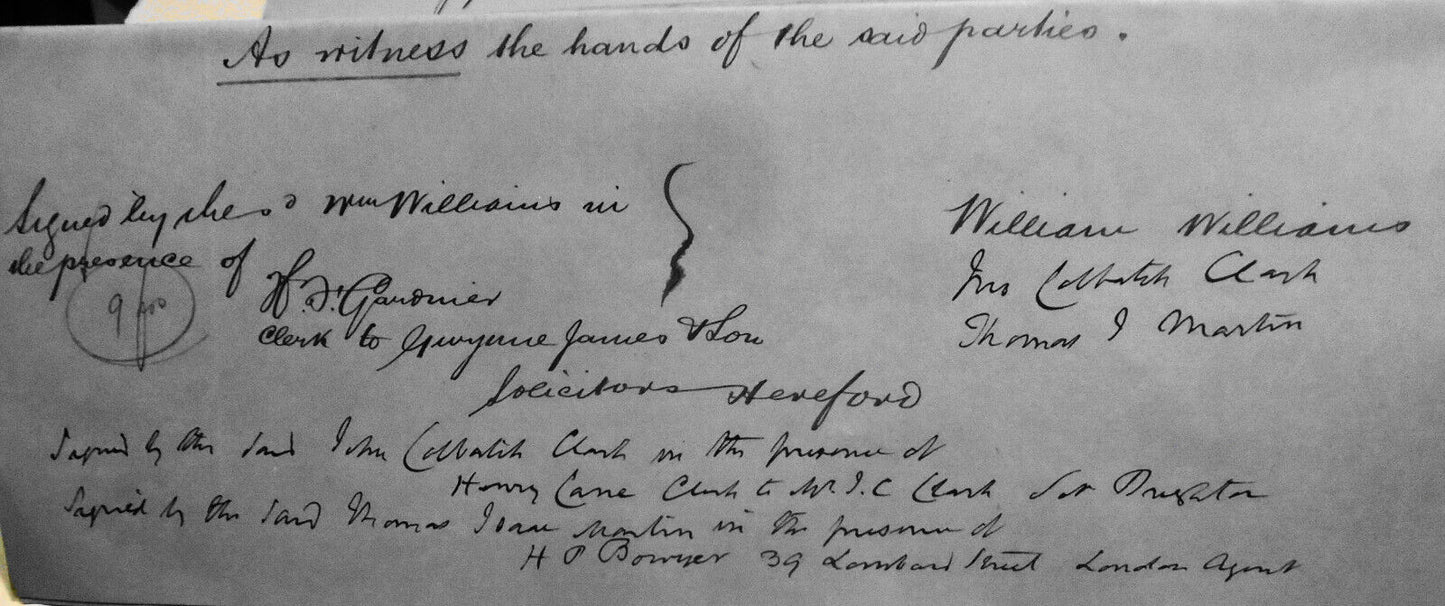 As witness the hands of the said parties.
Signed by the sd Wm Williams in
the presence of
H. J. Gardner
Clerk to Gwynne James & Son
Solicitors Hereford
William Williams
Jno Colbatch Clark
Thomas I Martin
9
Signed by the said John Colbatch Clark in the presence of
Henry Cane Clerk to Mr J. C Clark Sor Brighton
Signed by the said Thomas Isaac Martin in the presence of
H P Bowyer 39 Lombard Street London Agent